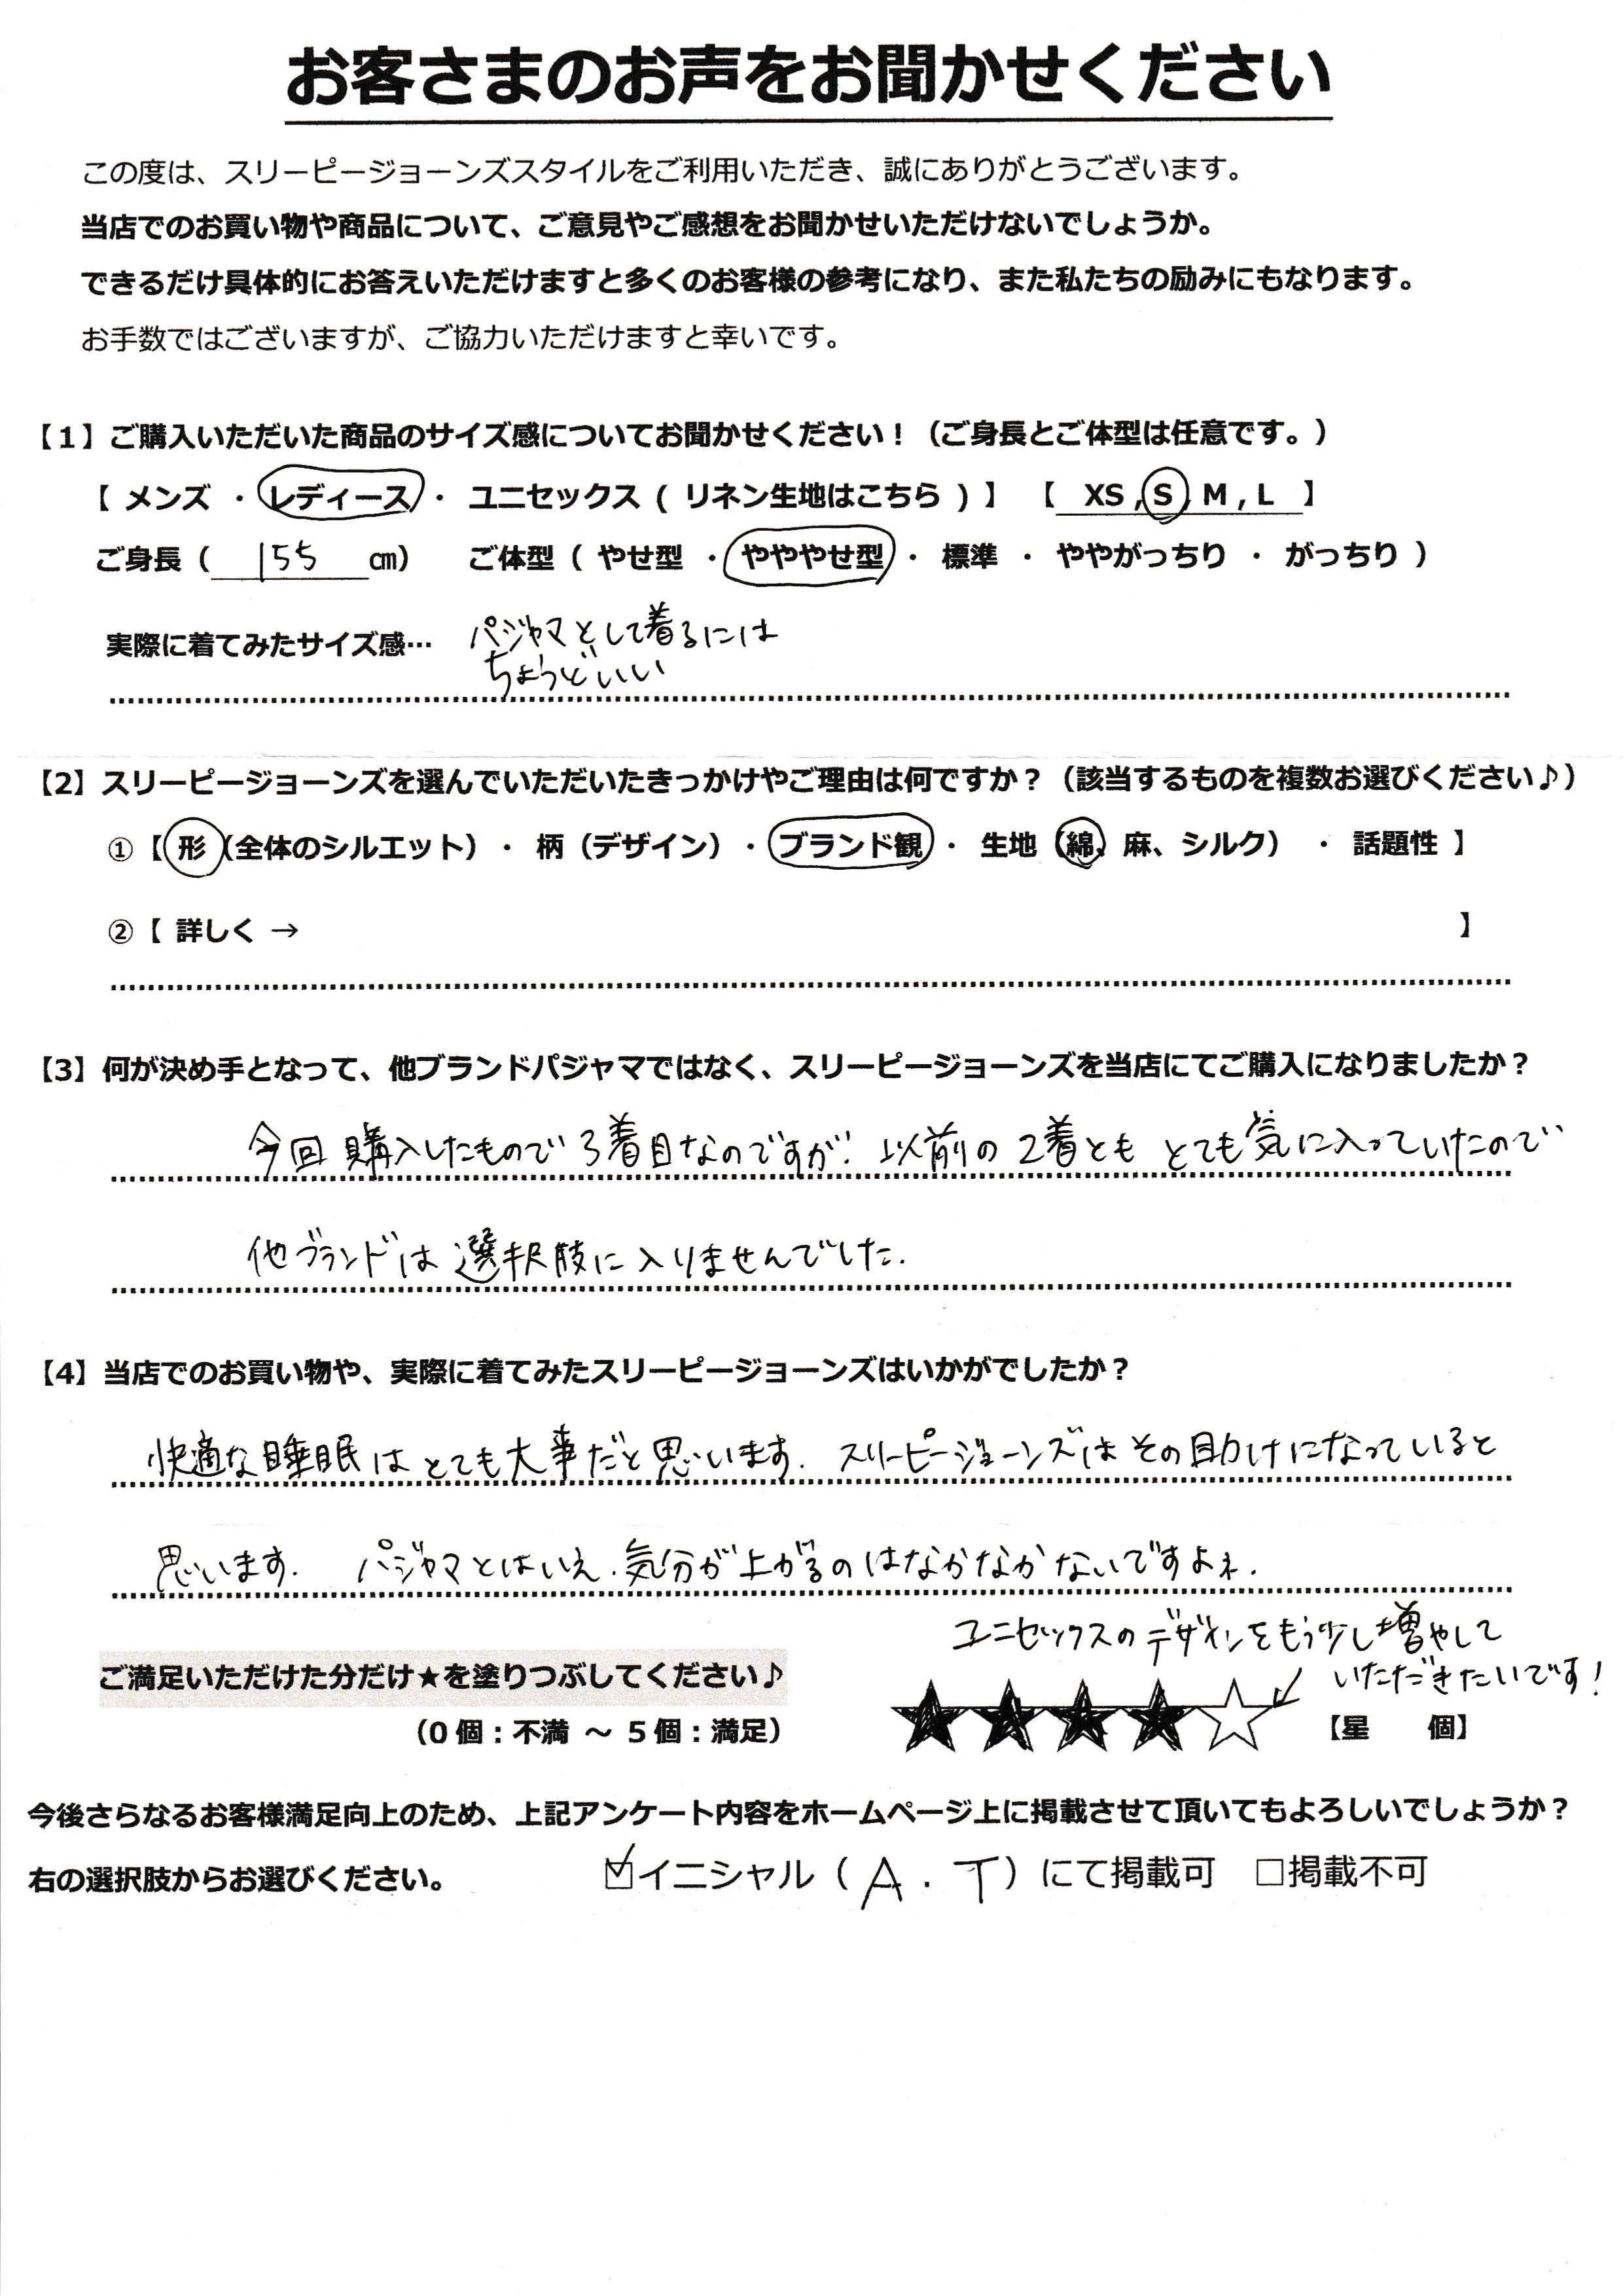 お客さまのお声をお聞かせください
この度は、スリーピージョーンズスタイルをご利用いただき、誠にありがとうございます。
当店でのお買い物や商品について、ご意見やご感想をお聞かせいただけないでしょうか。
できるだけ具体的にお答えいただけますと多くのお客様の参考になり、また私たちの励みにもなります。
お手数ではございますが、ご協力いただけますと幸いです。
【1】ご購入いただいた商品のサイズ感についてお聞かせください！（ご身長とご体型は任意です。）
【 メンズ ・ レディース ・ ユニセックス ( リネン生地はこちら ) 】 【 XS , S , M , L 】
ご身長（ 155 ㎝） ご体型（ やせ型 ・ ややや​せ型 ・ 標準 ・ ややがっちり ・ がっちり ）
実際に着てみたサイズ感… パジャマとして着るには
ちょうどいい
【2】スリーピージョーンズを選んでいただいたきっかけやご理由は何ですか？（該当するものを複数お選びください♪）
①【 形（全体のシルエット）・ 柄（デザイン）・ ブランド観 ・ 生地（綿、麻、シルク） ・ 話題性 】
②【 詳しく → 】
【3】何が決め手となって、他ブランドパジャマではなく、スリーピージョーンズを当店にてご購入になりましたか？
今回購入したもので3着目なのですが、以前の2着とも とても気に入っていたので
他ブランドは選択肢に入りませんでした.
【4】当店でのお買い物や、実際に着てみたスリーピージョーンズはいかがでしたか？
快適な睡眠はとても大事だと思います. スリーピージョーンズはその助けになっていると
思います. パジャマとはいえ.気分が上がるのはなかなかないですよね.
ユニセックスのデザインをもう少し増やして
いただきたいです!
ご満足いただけた分だけ★を塗りつぶしてください♪
★★★★☆ 【星 個】
（0個：不満 ～ 5個：満足）
今後さらなるお客様満足向上のため、上記アンケート内容をホームページ上に掲載させて頂いてもよろしいでしょうか？
右の選択肢からお選びください。 ☑イニシャル（ A . T ）にて掲載可 □掲載不可